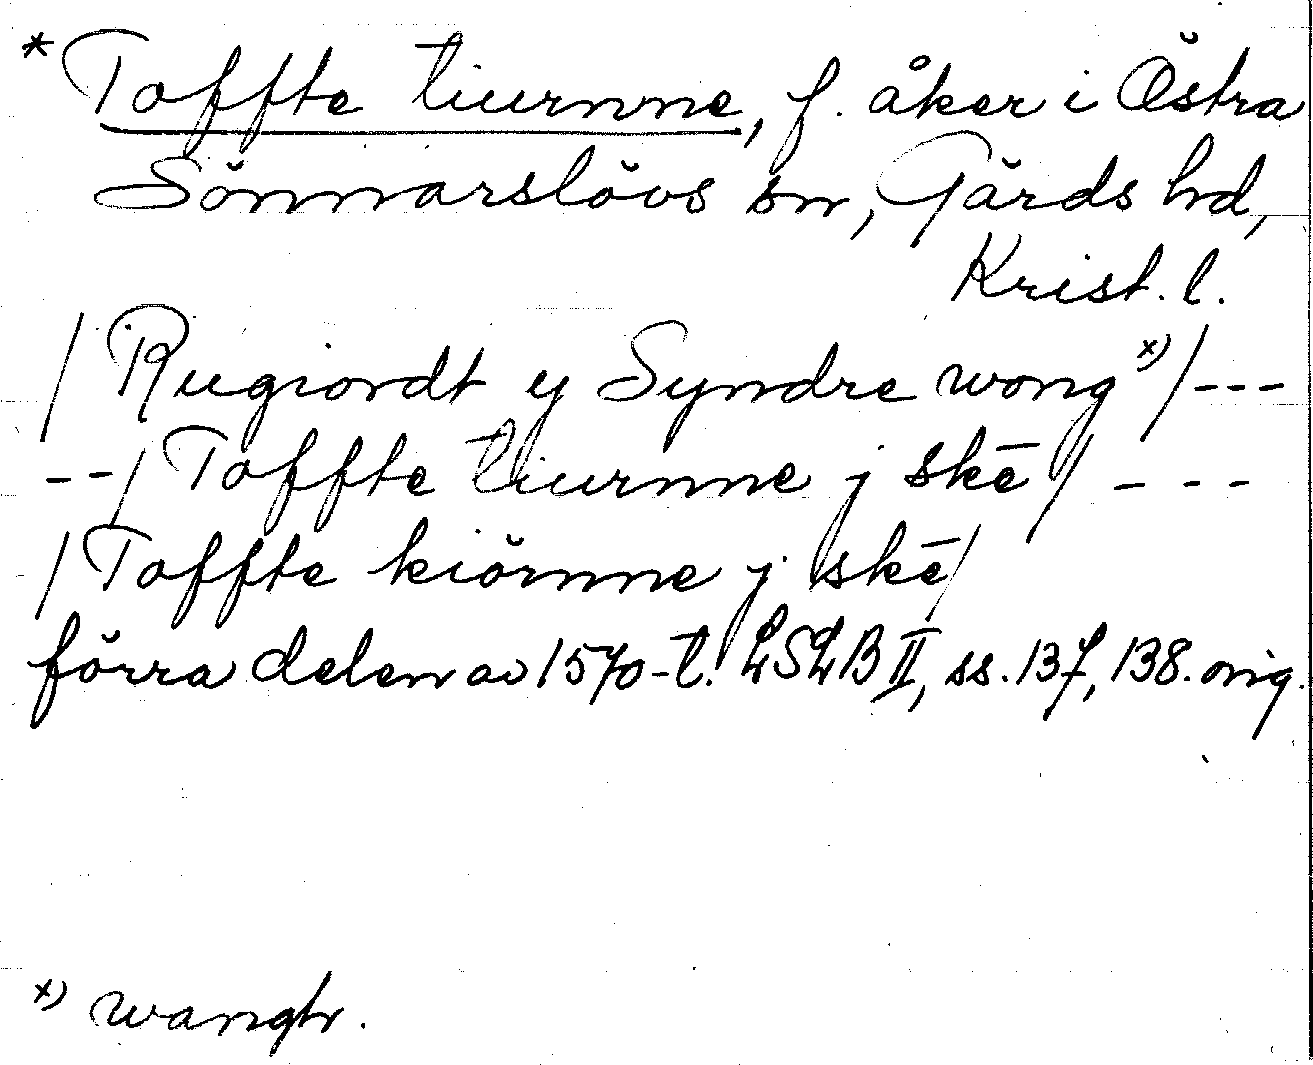 * Toffte tiurnne, f. åker i Östra
Sönnarslövs sn, Gärds hd,
Krist. l.
/ Rugiordt y Syndre wong x) / - - -
- - / Toffte tiurnne j skē / - - -
/ Toffte kiörnne j skē /
förra delen av 1570-t. LSLB II, ss. 137, 138. orig.
x) wangh.